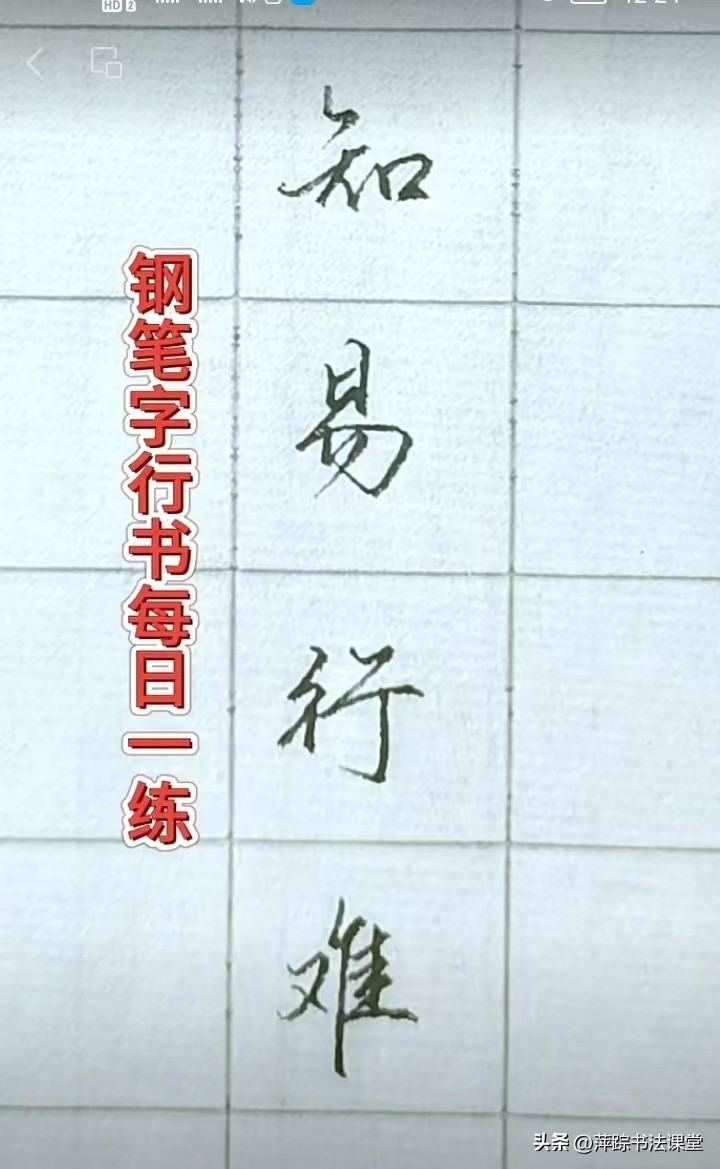 知易行难
钢笔字行书每日一练
头条 @萍踪书法课堂